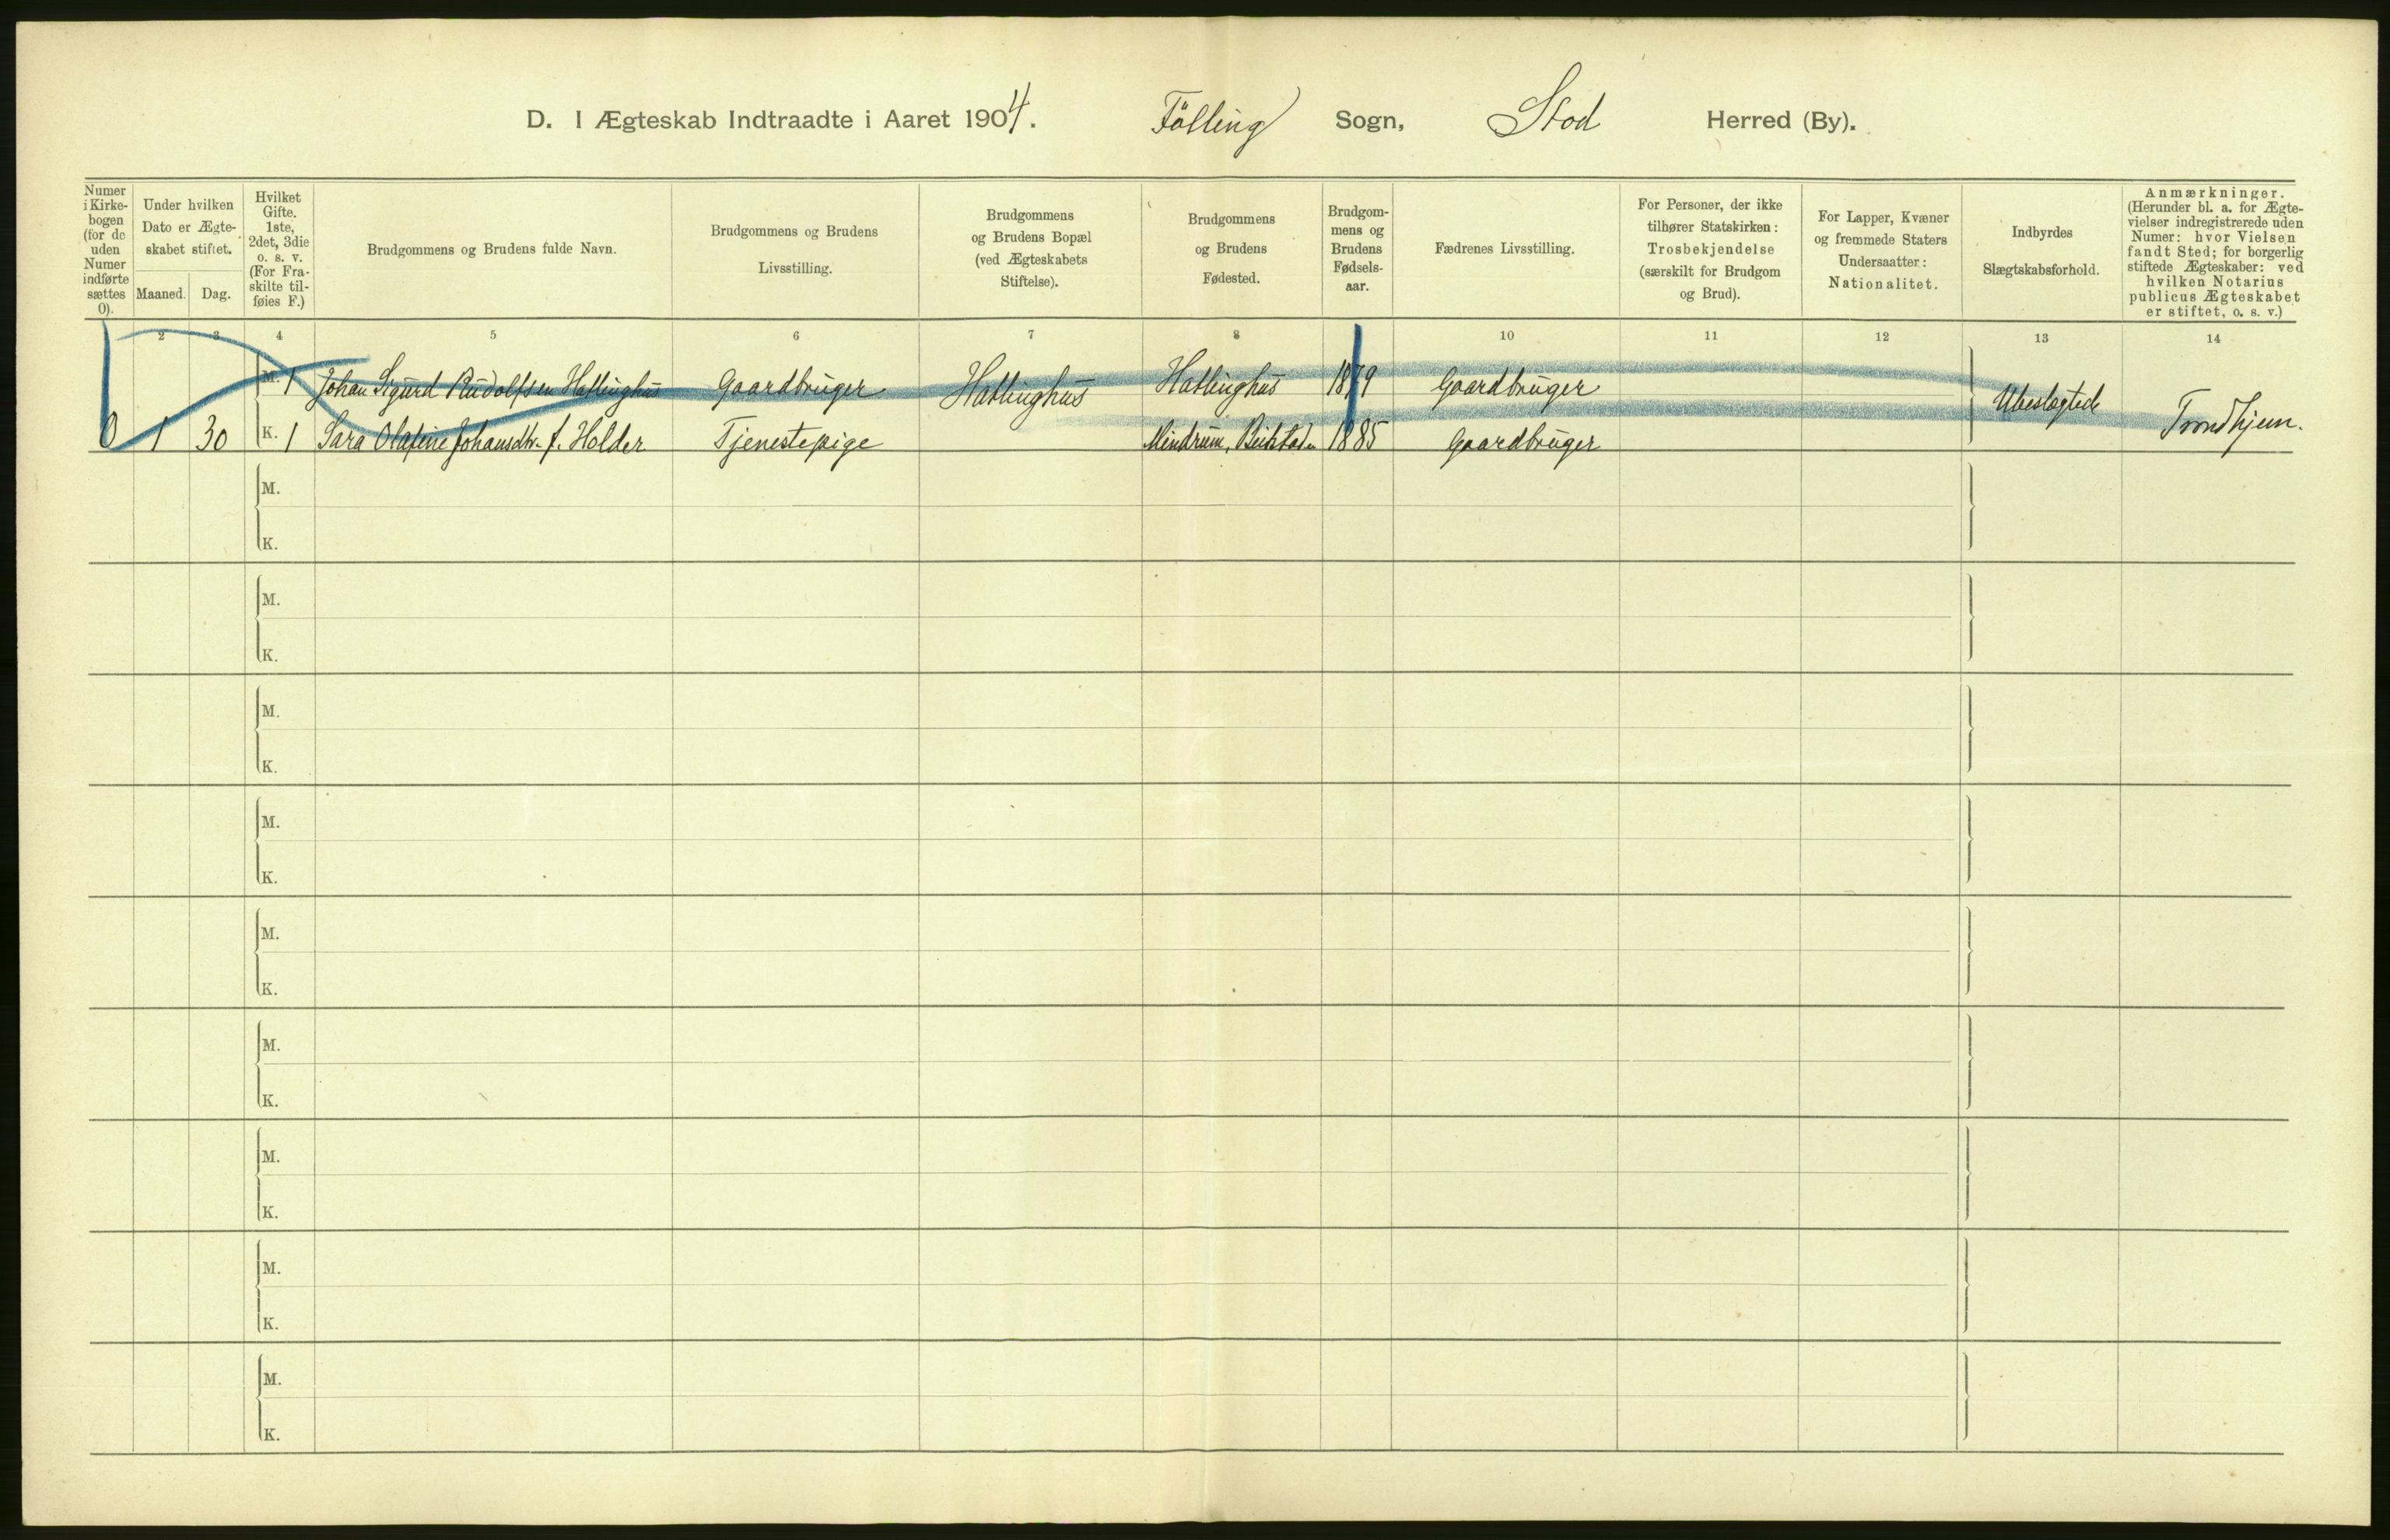 D. I Ægteskab Indtraadte i Aaret 1904. Fölling Sogn, Stod Herred (By).
Numer
i Kirke-
bogen
(for de
uden
Numer
indførte
sættes
0).
Under hvilken
Dato er Ægte-
skabet stiftet.
Maaned. Dag.
Hvilket
Gifte.
1ste,
2det, 3die
o. s. v.
(For Fra-
skilte til-
føies F.)
Brudgommens og Brudens fulde Navn.
Brudgommens og Brudens
Livsstilling.
Brudgommens
og Brudens Bopæl
(ved Ægteskabets
Stiftelse).
Brudgommens
og Brudens
Fødested.
Brudgom-
mens og
Brudens
Fødsels-
aar.
Fædrenes Livsstilling.
For Personer, der ikke
tilhører Statskirken:
Trosbekjendelse
(særskilt for Brudgom
og Brud).
For Lapper, Kvæner
og fremmede Staters
Undersaatter:
Nationalitet.
Indbyrdes
Slægtskabsforhold.
Anmærkninger.
(Herunder bl. a. for Ægte-
vielser indregistrerede uden
Numer: hvor Vielsen
fandt Sted; for borgerlig
stiftede Ægteskaber: ved
hvilken Notarius
publicus Ægteskabet
er stiftet, o. s. v.)
2 3 4 5 6 7 8 10 11 12 13 14
M. 1 Johan Sigurd Rudolfsen Hatlinghus Gaardbruger Hatlinghus Hatlinghus 1879 Gaardbruger Ubeslægtede Trondhjem.
0 1 30 K. 1 Sara Olafine Johansdtr. f. Holder Tjenestepige 1885 Gaardbruger
M.
K.
M.
K.
M.
K.
M.
K.
M.
K.
M.
K.
M.
K.
M.
K.
M.
K.